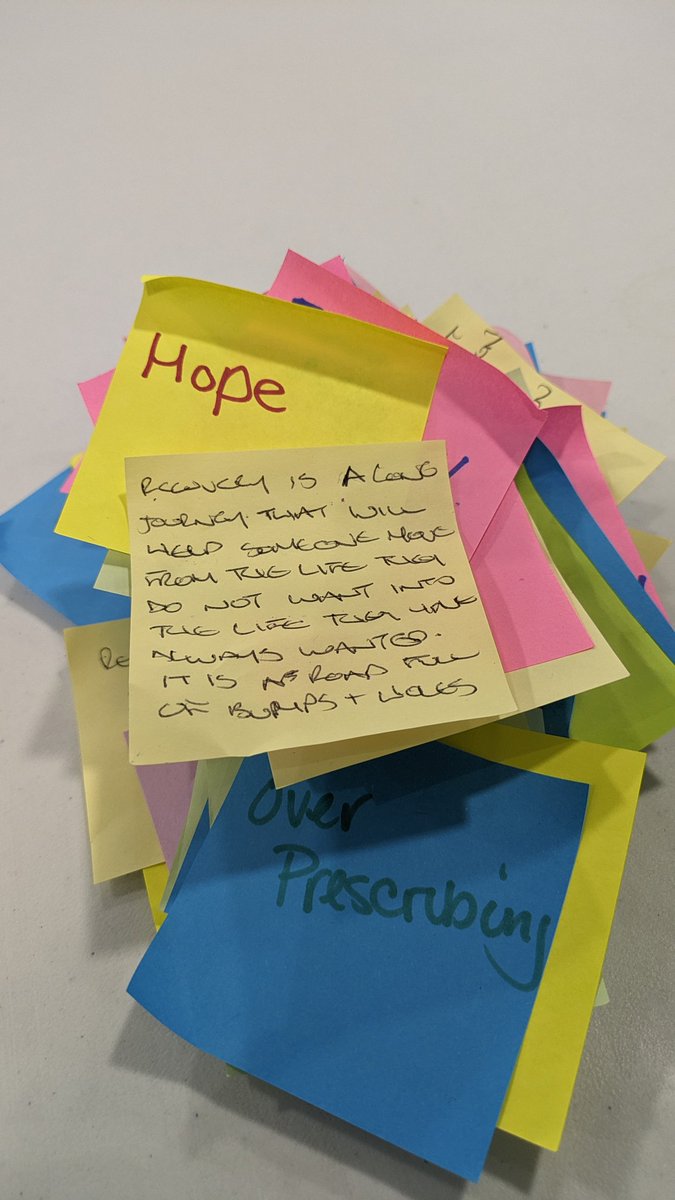 Hope
RECOVERY IS A LONG
JOURNEY THAT WILL
HELP SOMEONE MOVE
FROM THE LIFE THEY
DO NOT WANT INTO
THE LIFE THEY HAVE
ALWAYS WANTED.
IT IS A ROAD FULL
OF BUMPS + HOLES
RE
Over
Prescribing